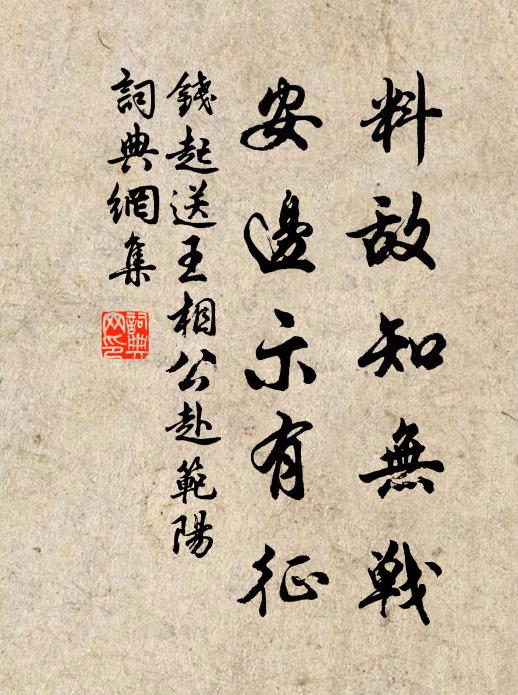 料敌知無戦
安邊示有征
錢起送王相公赴範陽
詞典網集
詞典网印